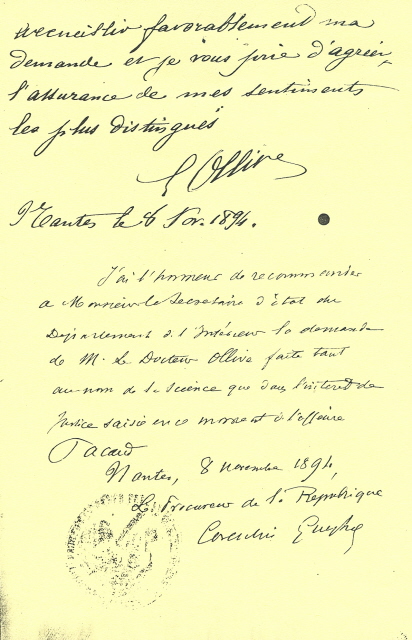 accueillir favorablement ma
demande et je vous prie d'agréer,
l'assurance de mes sentiments
les plus distingués
G Ollive
Nantes le 6 Nov. 1894.
J'ai l'honneur de recommander
a Monsieur le Secrétaire d'état du
Département de l'Intérieur la demande
de M. Le Docteur Ollive faite tant
au nom de la Science que dans l'intérêt de
Justice saisie en ce moment de l'affaire
Nantes, 8 novembre 1894,
Le Procureur de la République